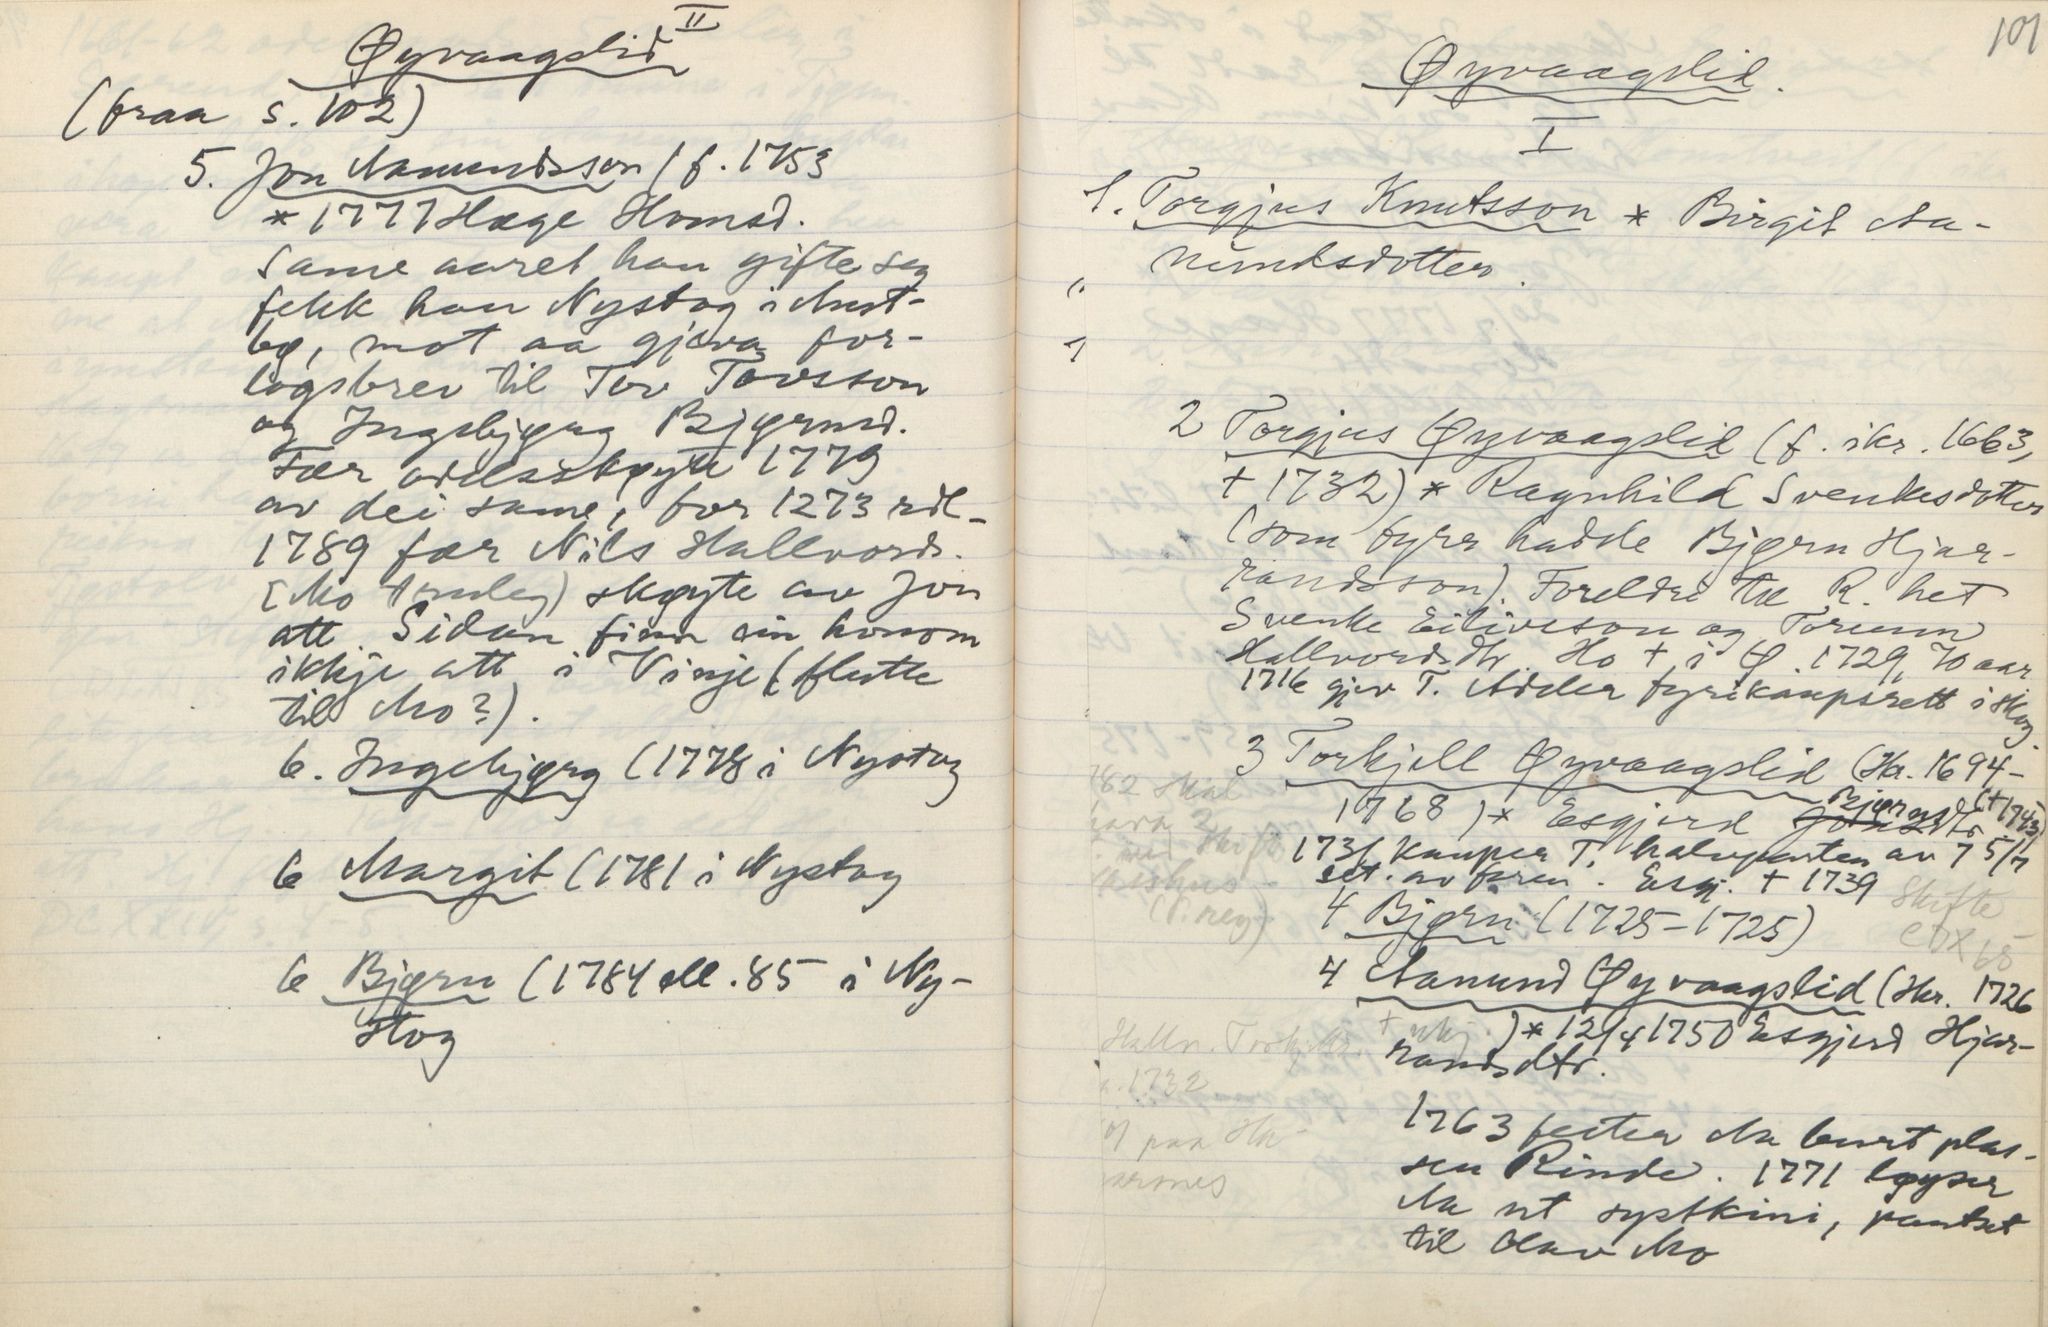 Øyvaagslid II
(fraa s. 102)
5. Jon Aamundsson (f. 1753
* 1777 Hæge Homsd.
Same aaret han gifte seg
fekk han Nystog i Aust-
bø, mot aa gjeva for-
logsbrev til Tov Tovsson
og Ingebjørg Bjørnsd.
Fær odelsskøyte 1779
av dei same, for 1273 rdl.
1789 fær Nils Hallvords.
(Mo truleg) skøyte av Jon
att Sidan finn ein honom
ikkje att i Vinje (flutte
til Mo?).
6. Ingebjørg (1778 i Nystog
6 Margit (1781 i Nystog
6 Bjørn (1784 ell. 85 i Ny-
stog
101
Øyvaagslid.
I
1. Torgjus Knutsson * Birgit Aa-
mundsdotter.
2 Torgjus Øyvaagslid (f. ikr. 1663,
+ 1732) * Ragnhild Svenkesdotter
(som fyrr hadde Bjørn Hjar-
randsson). Foreldri til R. het
Svenke Eilivsson og Torunn
Hallvordsdtr. Ho + i Ø. 1729, 70 aar
1716 gjev T. Adeler fyrikaupsrett i skog.
3 Torkjell Øyvaagslid (Ikr. 1694-
1768) * Esgjerd Jonsdtr Bjørnsdtr (+1743)
1731 kauper T. halvparten av 7 5/7
set. av faren. Esgj. + 1739
Skifte
4 Bjørn (1725-1725)
4 Aamund Øyvaagslid (Ikr. 1726
) * 12/4 1750 Esgjerd Hjar-
randsdtr.
1763 fester Aa burt plas-
sen Rinde. 1771 løyser
Aa ut systkini, pantset
til Olav Mo
82 skal
(P. reg)
Hallv. Torkjels.
1732
paa Ha-